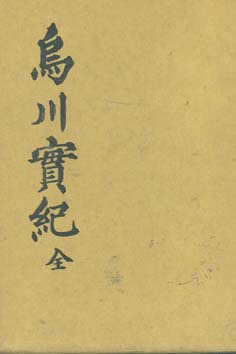 烏川實紀 全